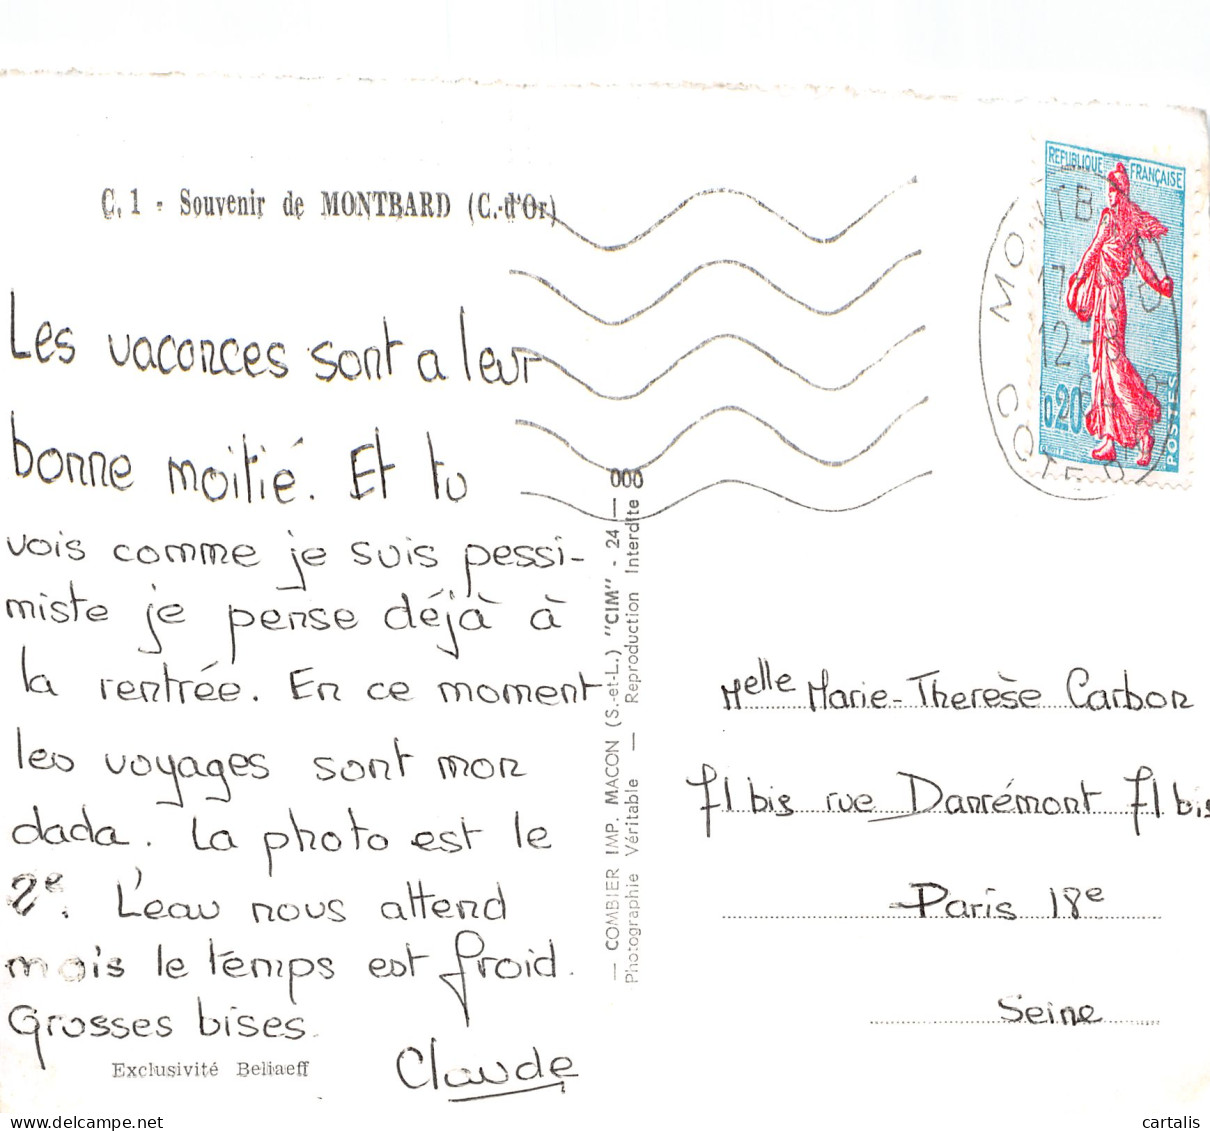 C. 1 - Souvenir de MONTBARD (C.-d'Or)
REPUBLIQUE FRANÇAISE
0,20
POSTES
Les vacances sont a leur
bonne moitié. Et tu
vois comme je suis pessi-
miste je pense déjà à
la rentrée. En ce moment
les voyages sont mon
dada. La photo est le
2e. L'eau nous attend
mais le temps est froid.
Grosses bises.
Claude
Exclusivité Beliaeff
— COMBIER IMP. MACON (S.-et-L.) "CIM" - 24 — 000
Photographie Véritable — Reproduction Interdite
Melle Marie-Therèse Carbon
71 bis rue Danrémont 71 bis
Paris 18e
Seine
cartalis